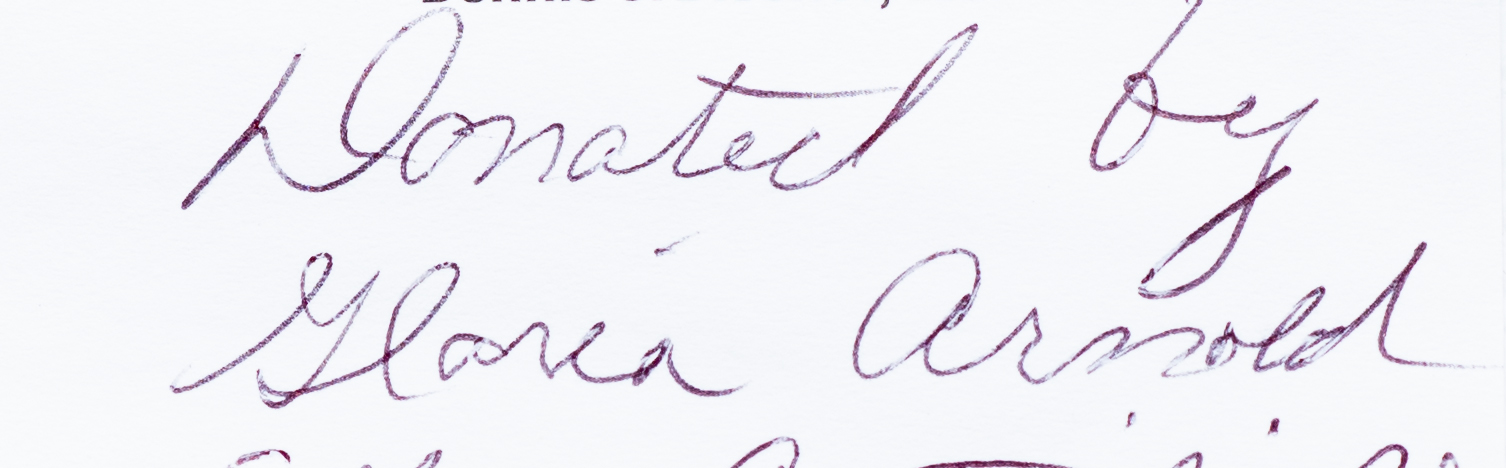 Donated by
Gloria Arnold